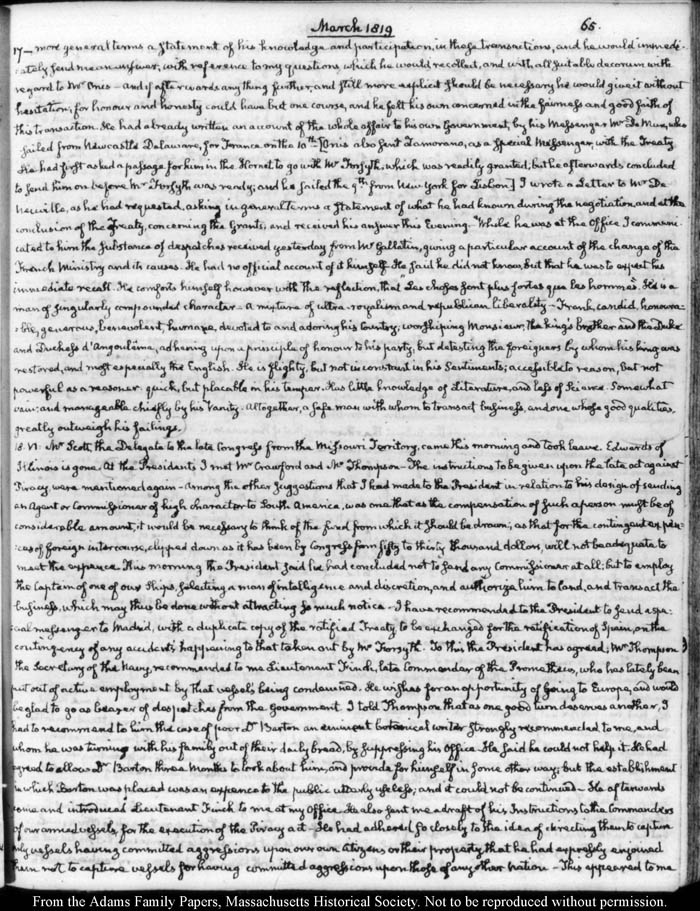 March 1819
65.
17— more general terms a Statement of his knowledge and participation, in these transactions, and he would immedi-
-ately send me an answer, with reference to my questions which he would recollect, and with all suitable decorum with
regard to Mr Onis— and if afterwards any thing further, and still more explicit should be necessary he would give it without
hesitation; for honour and honesty could have but one course, and he felt his own concerned in the fairness and good faith of
this transaction. He had already written an account of the whole affair to his own Government, by his Messenger Mr De Mun, who
sailed from Newcastle Delaware, for France on the 10th [Onis also sent Zamorano, as a Special Messenger, with the Treaty
He had first asked a passage for him in the Hornet to go with Mr Forsyth, which was readily granted, but he afterwards concluded
to send him on before Mr Forsyth was ready, and he sailed the 9th from New York for Lisbon] I wrote a Letter to Mr De
Neuville, as he had requested, asking in general Terms a Statement of what he had known during the negotiation, and at the
conclusion of the Treaty, concerning the Grants; and received his answer this Evening. While he was at the Office I communi-
cated to him the substance of despatches received yesterday from Mr Gallatin, giving a particular account of the change of the
French Ministry and its causes. He had no official account of it himself. He said he did not know, but that he was to expect his
immediate recall. He comforts himself however with the reflection, that Les choses sont plus fortes que les hommes. He is a
man of singularly compounded character. A mixture of ultra-royalism and republican liberality— Frank, candid, honoura-
-ble, generous, benevolent, humane, devoted to and adoring his Country; worshiping Monsieur, the king's brother and the Duke
and Duchess d'Angoulême, adhering upon a principle of honour to his party, but detesting the foreigners by whom his king was
restored, and most especially the English. He is flighty, but not inconstant in his Sentiments; accessible to reason, but not
powerful as a reasoner. quick, but placable in his temper. Has little knowledge of Literature, and less of Science. Somewhat
vain; and manageable chiefly by his Vanity. Altogether, a safe man with whom to transact business, and one whose good qualities,
greatly outweigh his failings.
18. VI. Mr Scott, the Delegate to the late Congress from the Missouri Territory, came this morning and took leave. Edwards of
Illinois is gone. At the Presidents I met Mr Crawford and Mr Thompson— The instructions to be given upon the late act against
Piracy were mentioned again— Among the other suggestions that I had made to the President in relation to his design of sending
an Agent or Commissioner of high character to South America, was one that as the compensation of such a person must be of
considerable amount, it would be necessary to think of the fund from which it should be drawn; as that for the contingent expen-
-ces of foreign intercourse, clipped down as it has been by Congress from fifty to thirty thousand dollars, will not be adequate to
meet the expence. This morning the President said he had concluded not to send any Commissioner at all; but to employ
the Captain of one of our ships, selecting a man of intelligence and discretion, and authorize him to land, and transact the
business, which may thus be done without attracting so much notice— I have recommended to the President to send a spe-
cial messenger to Madrid, with a duplicate copy of the ratified Treaty to be exchanged for the ratification of Spain, on the
contingency of any accident's happening to that taken out by Mr Forsyth. To this the President has agreed; Mr Thompson
the Secretary of the Navy, recommended to me Lieutenant Finch, late Commander of the Prometheus, who has lately been
put out of active employment by that vessel's being condemned. He wishes for an opportunity of going to Europe, and would
be glad to go as bearer of despatches from the Government. I told Thompson that as one good turn deserves another, I
had to recommend to him the case of poor Dr Barton an eminent botanical writer strongly recommended to me, and
whom he was turning with his family out of their daily bread, by suppressing his Office. He said he could not help it. He had
agreed to allow Dr Barton three Months to look about him, and provide for himself in some other way; but the establishment
in which Barton was placed was an expence to the public utterly useless; and it could not be continued— He afterwards
came and introduced Lieutenant Finch to me at my Office. He also sent me a draft of his Instructions to the Commanders
of our armed vessels, for the execution of the Piracy act— He had adhered so closely to the idea of directing them to capture
only vessels having committed aggressions upon our own Citizens or their property, that he had expressly enjoined
them not to capture vessels for having committed aggressions upon those of any other Nation— This appeared to me
From the Adams Family Papers, Massachusetts Historical Society. Not to be reproduced without permission.